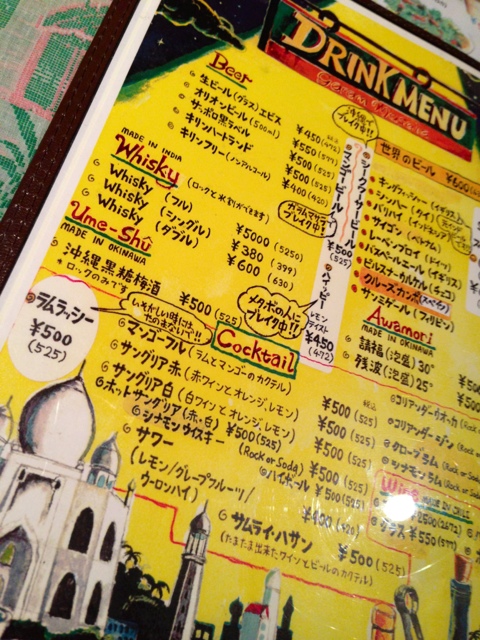 DRINK MENU
Beer
生ビール(グラス)エビス ¥450(472)
オリオンビール(500ml) ¥550(577)
サッポロ黒ラベル ¥500(525)
キリンハートランド ¥500(525)
キリンフリー(ノンアルコール) ¥400(420)
MADE IN INDIA
Whisky
(ロックと水割りができます)
Whisky (フル) ¥5000(5250)
Whisky (シングル) ¥380(399)
Whisky (ダブル) ¥600(630)
Ume-Shū
MADE IN OKINAWA
沖縄黒糖梅酒 ¥500(525)
*ロックのみです
沖縄でブレイク中!!
マンゴービール
シークワーサービール
¥500(525)
ガラムマサラブレイク中!!
ハイ・ピー
レモンテイスト
¥450(472)
メタボの人にブレイク中!!
世界のビール ¥600
キングフィッシャー(イギリス)
シンハー(タイ)
バリハイ(インドネシア)
サイゴン(ベトナム)
レーベンブロイ(ドイツ)
バスペールエール(イギリス)
ピルスナーウルケル(チェコ)
クルーズカンポ(スペイン)
サンミゲール(フィリピン)
Awamori
MADE IN OKINAWA
請福(泡盛)30°
残波(泡盛)25°
ラムラッシー
¥500
(525)
Cocktail
マンゴーフル(ラムとマンゴーのカクテル) ¥500(525)
サングリア赤(赤ワインとオレンジ、レモン) ¥500(525)
サングリア白(白ワインとオレンジ、レモン) ¥500(525)
ホットサングリア(赤・白) ¥500(525)
シナモンウイスキー(Rock or Soda) ¥500(525)
ハイボール ¥500(525)
サワー
(レモン/グレープフルーツ/
ウーロンハイ) ¥400(420)
サムライ・ハサン ¥500(525)
(たまたま出来たワインとビールのカクテル)
コリアンダーウオッカ(Rock or
コリアンダージン(Rock or
クローブラム(Rock or So
シナモンラム(Rock or
Wine MADE IN CHILE
2500(2672)
グラス ¥550(577)